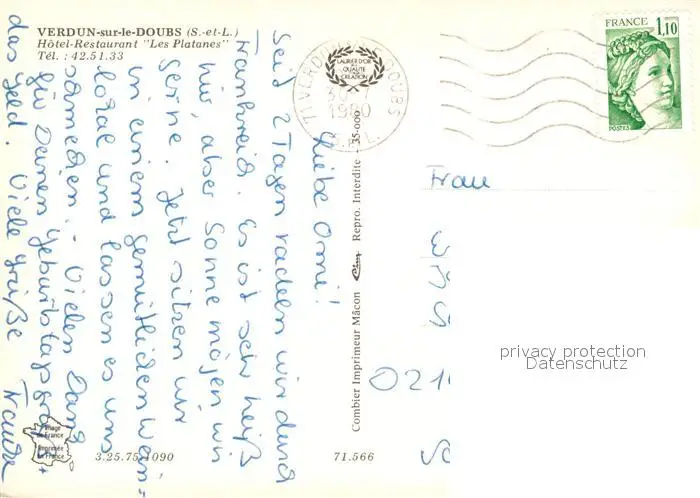 VERDUN-sur-le-DOUBS (S.-et-L.)
Hôtel-Restaurant "Les Platanes"
Tél. : 42.51.33
LAURIER D'OR
DE LA
QUALITÉ
CRÉATION
71 VERDUN S DOUBS
1980
S. & L.
FRANCE
1,10
POSTES
Liebe Omi!
Seid 2 Tagen radeln wir durch
Frankreich. Es ist sehr heiß
hier, aber Sonne mögen wir
gerne. Jetzt sitzen wir
in einem gemütlichen Wein-
lokal und lassen es uns
schmecken. - Vielen Dank
für Deinen Geburtstagsgruß +
das Geld. Viele Grüße Traude
Combier Imprimeur Mâcon Cim Repro. Interdite - 35-000
Frau
privacy protection
Datenschutz
Image
de France
Imprimée
en France
3.25.75.1090
71.566